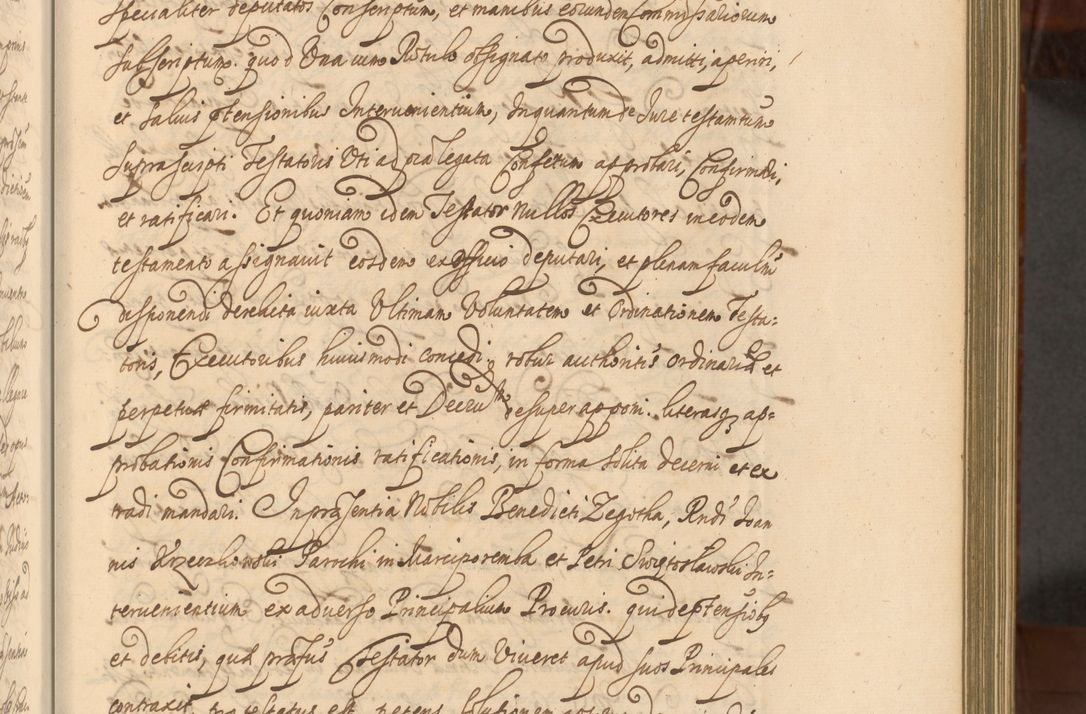 specialiter deputatos Conscriptum, et manibus eorunden Commissariorum
subscriptum. quod Una cum Rotulo ossignato produxit, admitti, aperiri,
et salvis ptensionibus Intervenientium, Inquantum de Jure testamtum
suprascripti Testatoris Uti ad pia legata Confectum approbari, Confirmari,
et ratificari. Et quoniam idem Testator nullos Executores in eodem
testamento assignavit eosdem ex officio deputari, et plenam facultm
disponendi derelicta iuxta Ultimam Voluntatem et Ordinationem Testa:
toris, Executoribus huiusmodi concedi, robur authoritis ordinariæ et
perpetuæ firmitatis, pariter et Decretu desuper apponi. literasq ap=
probationis Confirmationis ratificationis, in forma solita decerni et ex
tradi mandari. In præsentia Nobilis Benedicti Zegotha, Rndi Joan
nis Krzeczkowski Parochi in Marciporemba et Petri Swiętosławski In=
tervenientium ex adverso Principalium Procuris. qui de ptensiobq
et debitis, quæ præfus Testator dum Viveret apud suos Principales
contraxit, protestatus est, petens solutionem